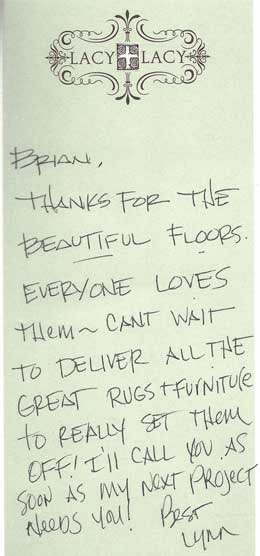 LACY LACY
BRIAN,
THANKS FOR THE
BEAUTIFUL FLOORS.
EVERYONE LOVES
THEM~ CANT WAIT
TO DELIVER ALL THE
GREAT RUGS + FURNITURE
TO REALLY SET THEM
OFF! I'll CALL YOU AS
SOON AS MY NEXT PROJECT
NEEDS YOU! BEST
LYNN